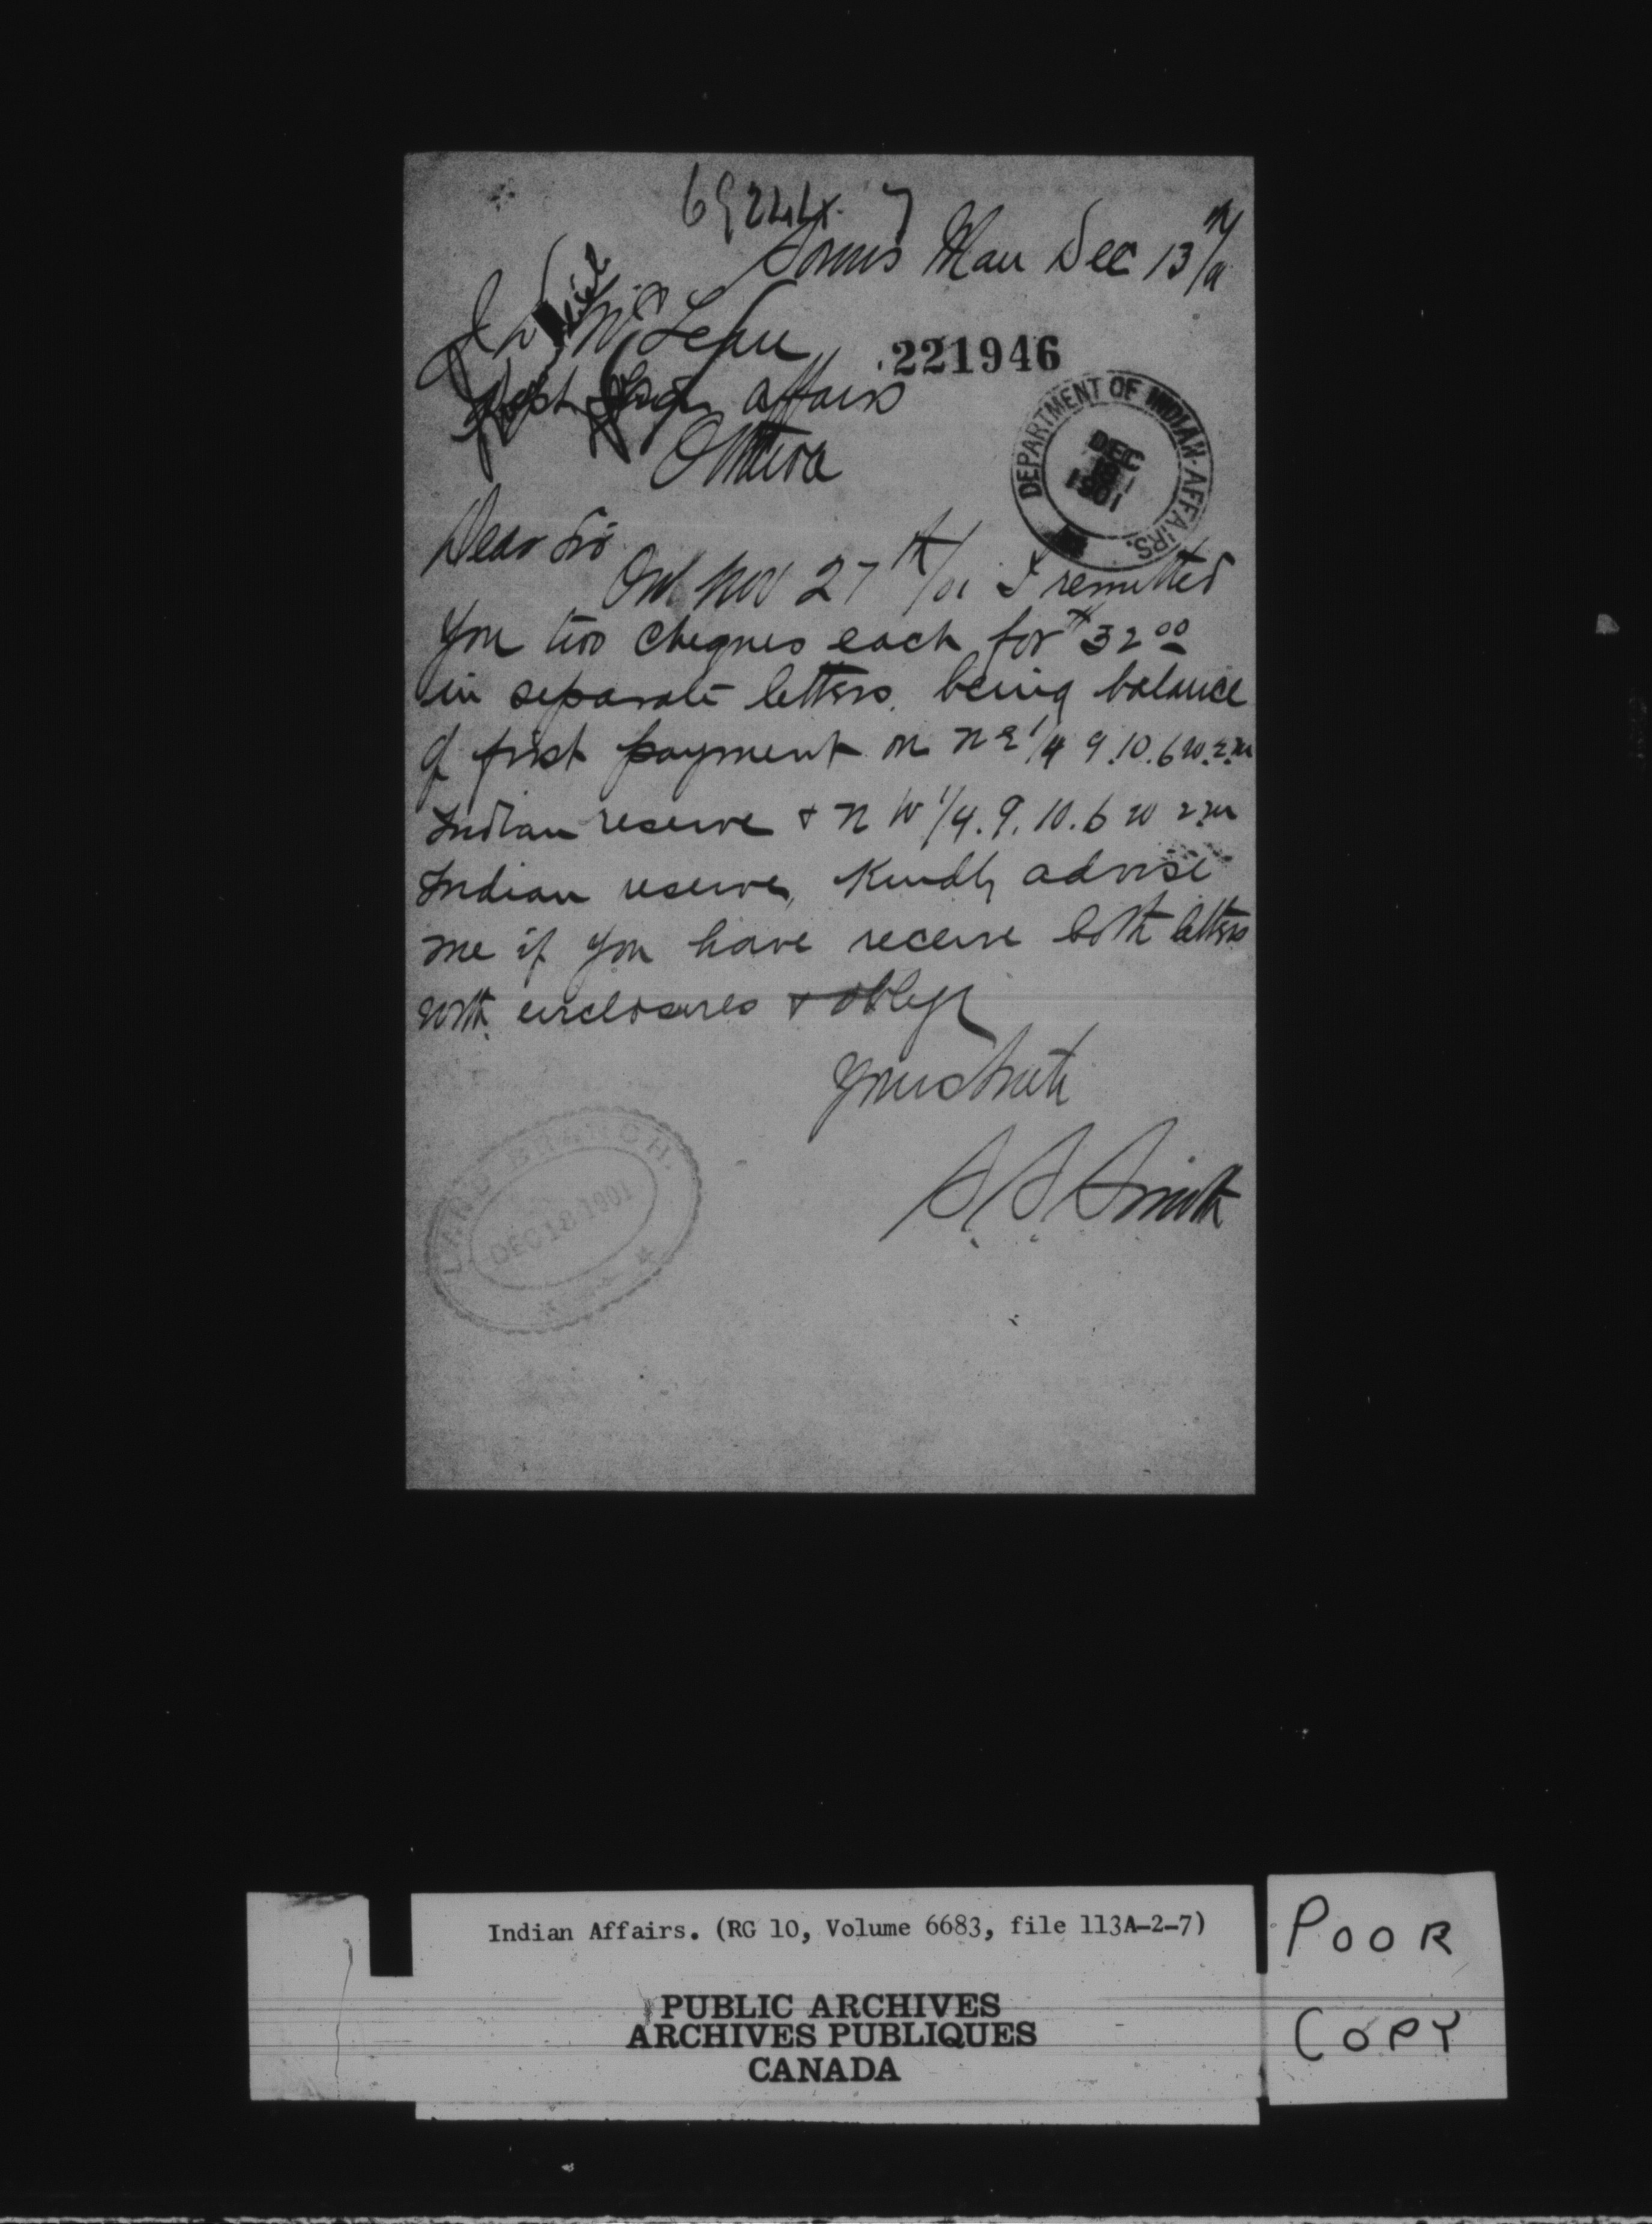 Souris Man Dec 13th/01
J D McLean
Dept Indian affairs
Ottawa
221946
DEPARTMENT OF INDIAN AFFAIRS.
DEC
1901
Dear Sir
On Nov 27th/01 I remitted
you two cheques each for $32.00
in separate letters, being balance
of first payment on N E 1/4 9.10.6 W. 2. M
Indian reserve & N W 1/4. 9. 10. 6 W 2 M
Indian reserve, Kindly advise
me if you have receive both letters
with enclosures & oblige
Yours truly
S S Smith
LAND BRANCH.
DEC 18 1901
Indian Affairs. (RG 10, Volume 6683, file 113A-2-7)
PUBLIC ARCHIVES
ARCHIVES PUBLIQUES
CANADA
POOR
COPY